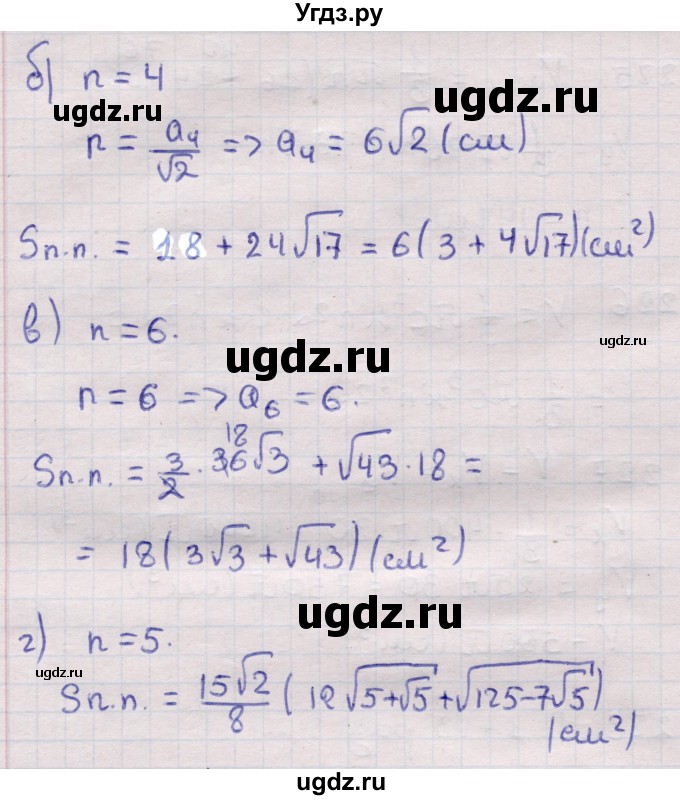 Угдз.ру
б) n = 4
ugdz.ru
ugdz.ru
r = a₄/√2 => a₄ = 6√2 (см)
Sп.п. = 18 + 24√17 = 6(3 + 4√17)(см²)
в) n = 6.
ugdz.ru
ugdz.ru
r = 6 => a₆ = 6.
18
Sп.п. = 3/2 · 36√3 + √43 · 18 =
= 18(3√3 + √43)(см²)
ugdz.ru
г) n = 5.
ugdz.ru
Sп.п. = 15√2/8 (12√(5+√5) + √(125-7√5))
(см²)
ugdz.ru
ugdz.ru